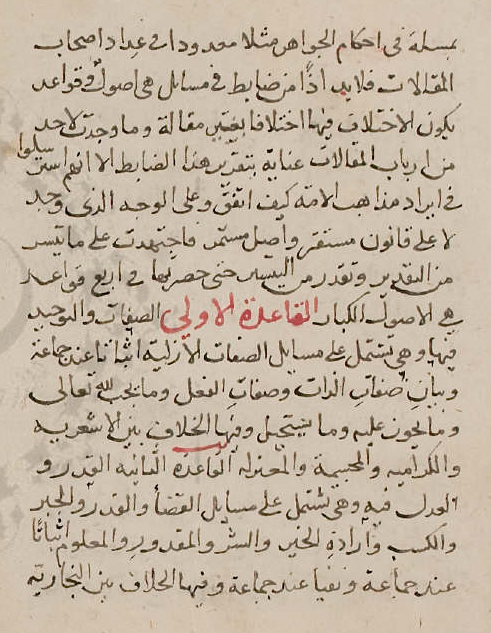 بمسئلة في احكام الجواهر مثلا معدودا في عداد اصحاب
المقالات فلابد اذًا من ضابط في مسايل هي اصول وقواعد
يكون الاختلاف فيها اختلافا يعتبر مقالة وما وجدت لاحد
من ارباب المقالات عناية بتقرير هذا الضابط الا انهم استرسلوا
في ايراد مذاهب الامة كيف اتفق وعلى الوجه الذي وجد
لا على قانون مستقر واصل مستمر فاجتهدت على ما تيسر
من التقدير وتقدر من التيسير حتى حصرتها في اربع قواعد
هي الاصول الكبار القاعدة الاولى الصفات والتوحيد
فيها وهي تشتمل على مسايل الصفات الازلية اثباتا عند جماعة
وبيان صفات الذات وصفات الفعل وما يجب لله تعالى
وما يجوز عليه وما يستحيل وفيها الخلاف بين الاشعرية
والكرامية والمجسمة والمعتزلة القاعدة الثانية القدر و
العدل فيه وهي تشتمل على مسايل القضا والقدر والجبر
والكسب وارادة الخير والشر والمقدور والمعلوم اثباتًا
عند جماعة ونفيا عند جماعة وفيها الخلاف بين النجارية